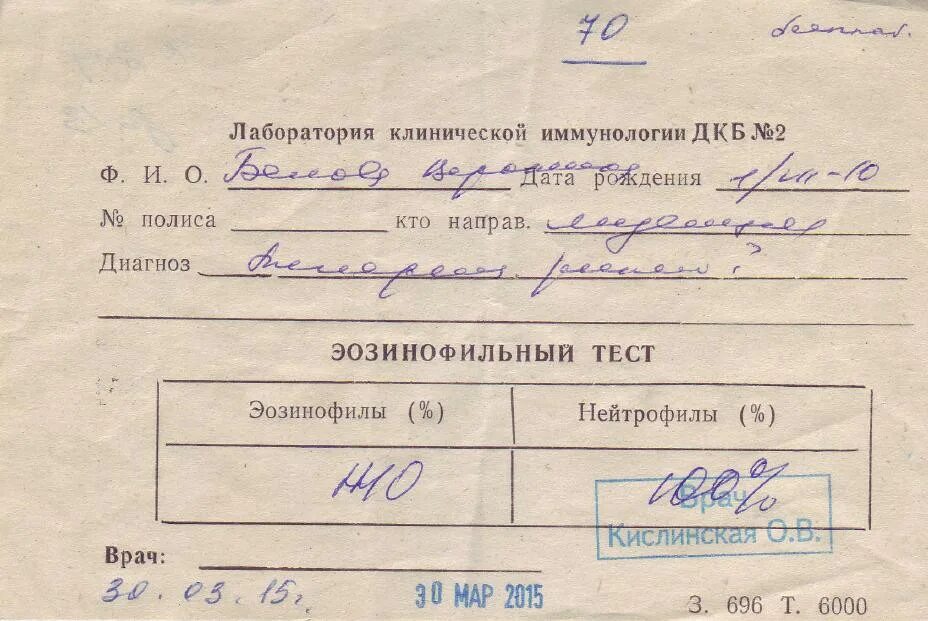 70 бесплат.
Лаборатория клинической иммунологии ДКБ №2
Ф. И. О. Белова Дата рождения 1/VII-10
№ полиса кто направ.
Диагноз ?
ЭОЗИНОФИЛЬНЫЙ ТЕСТ
Эозинофилы (%) Нейтрофилы (%)
100%
Врач
Кислинская О.В.
Врач:
30.03.15г. 30 МАР 2015
З. 696 Т. 6000